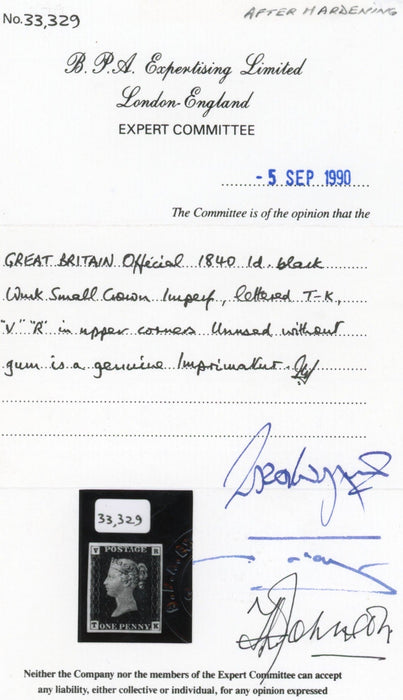 No. 33,329
AFTER HARDENING
B. P. A. Expertising Limited
London-England
EXPERT COMMITTEE
- 5 SEP 1990
The Committee is of the opinion that the
GREAT BRITAIN Official 1840 1d. black
Wmk Small Crown Imperf, lettered T-K,
"V" "R" in upper corners Unused without
gum is a genuine Imprimatur.
33,329
V POSTAGE R
T ONE PENNY K
Johnson
Neither the Company nor the members of the Expert Committee can accept
any liability, either collective or individual, for any opinion expressed